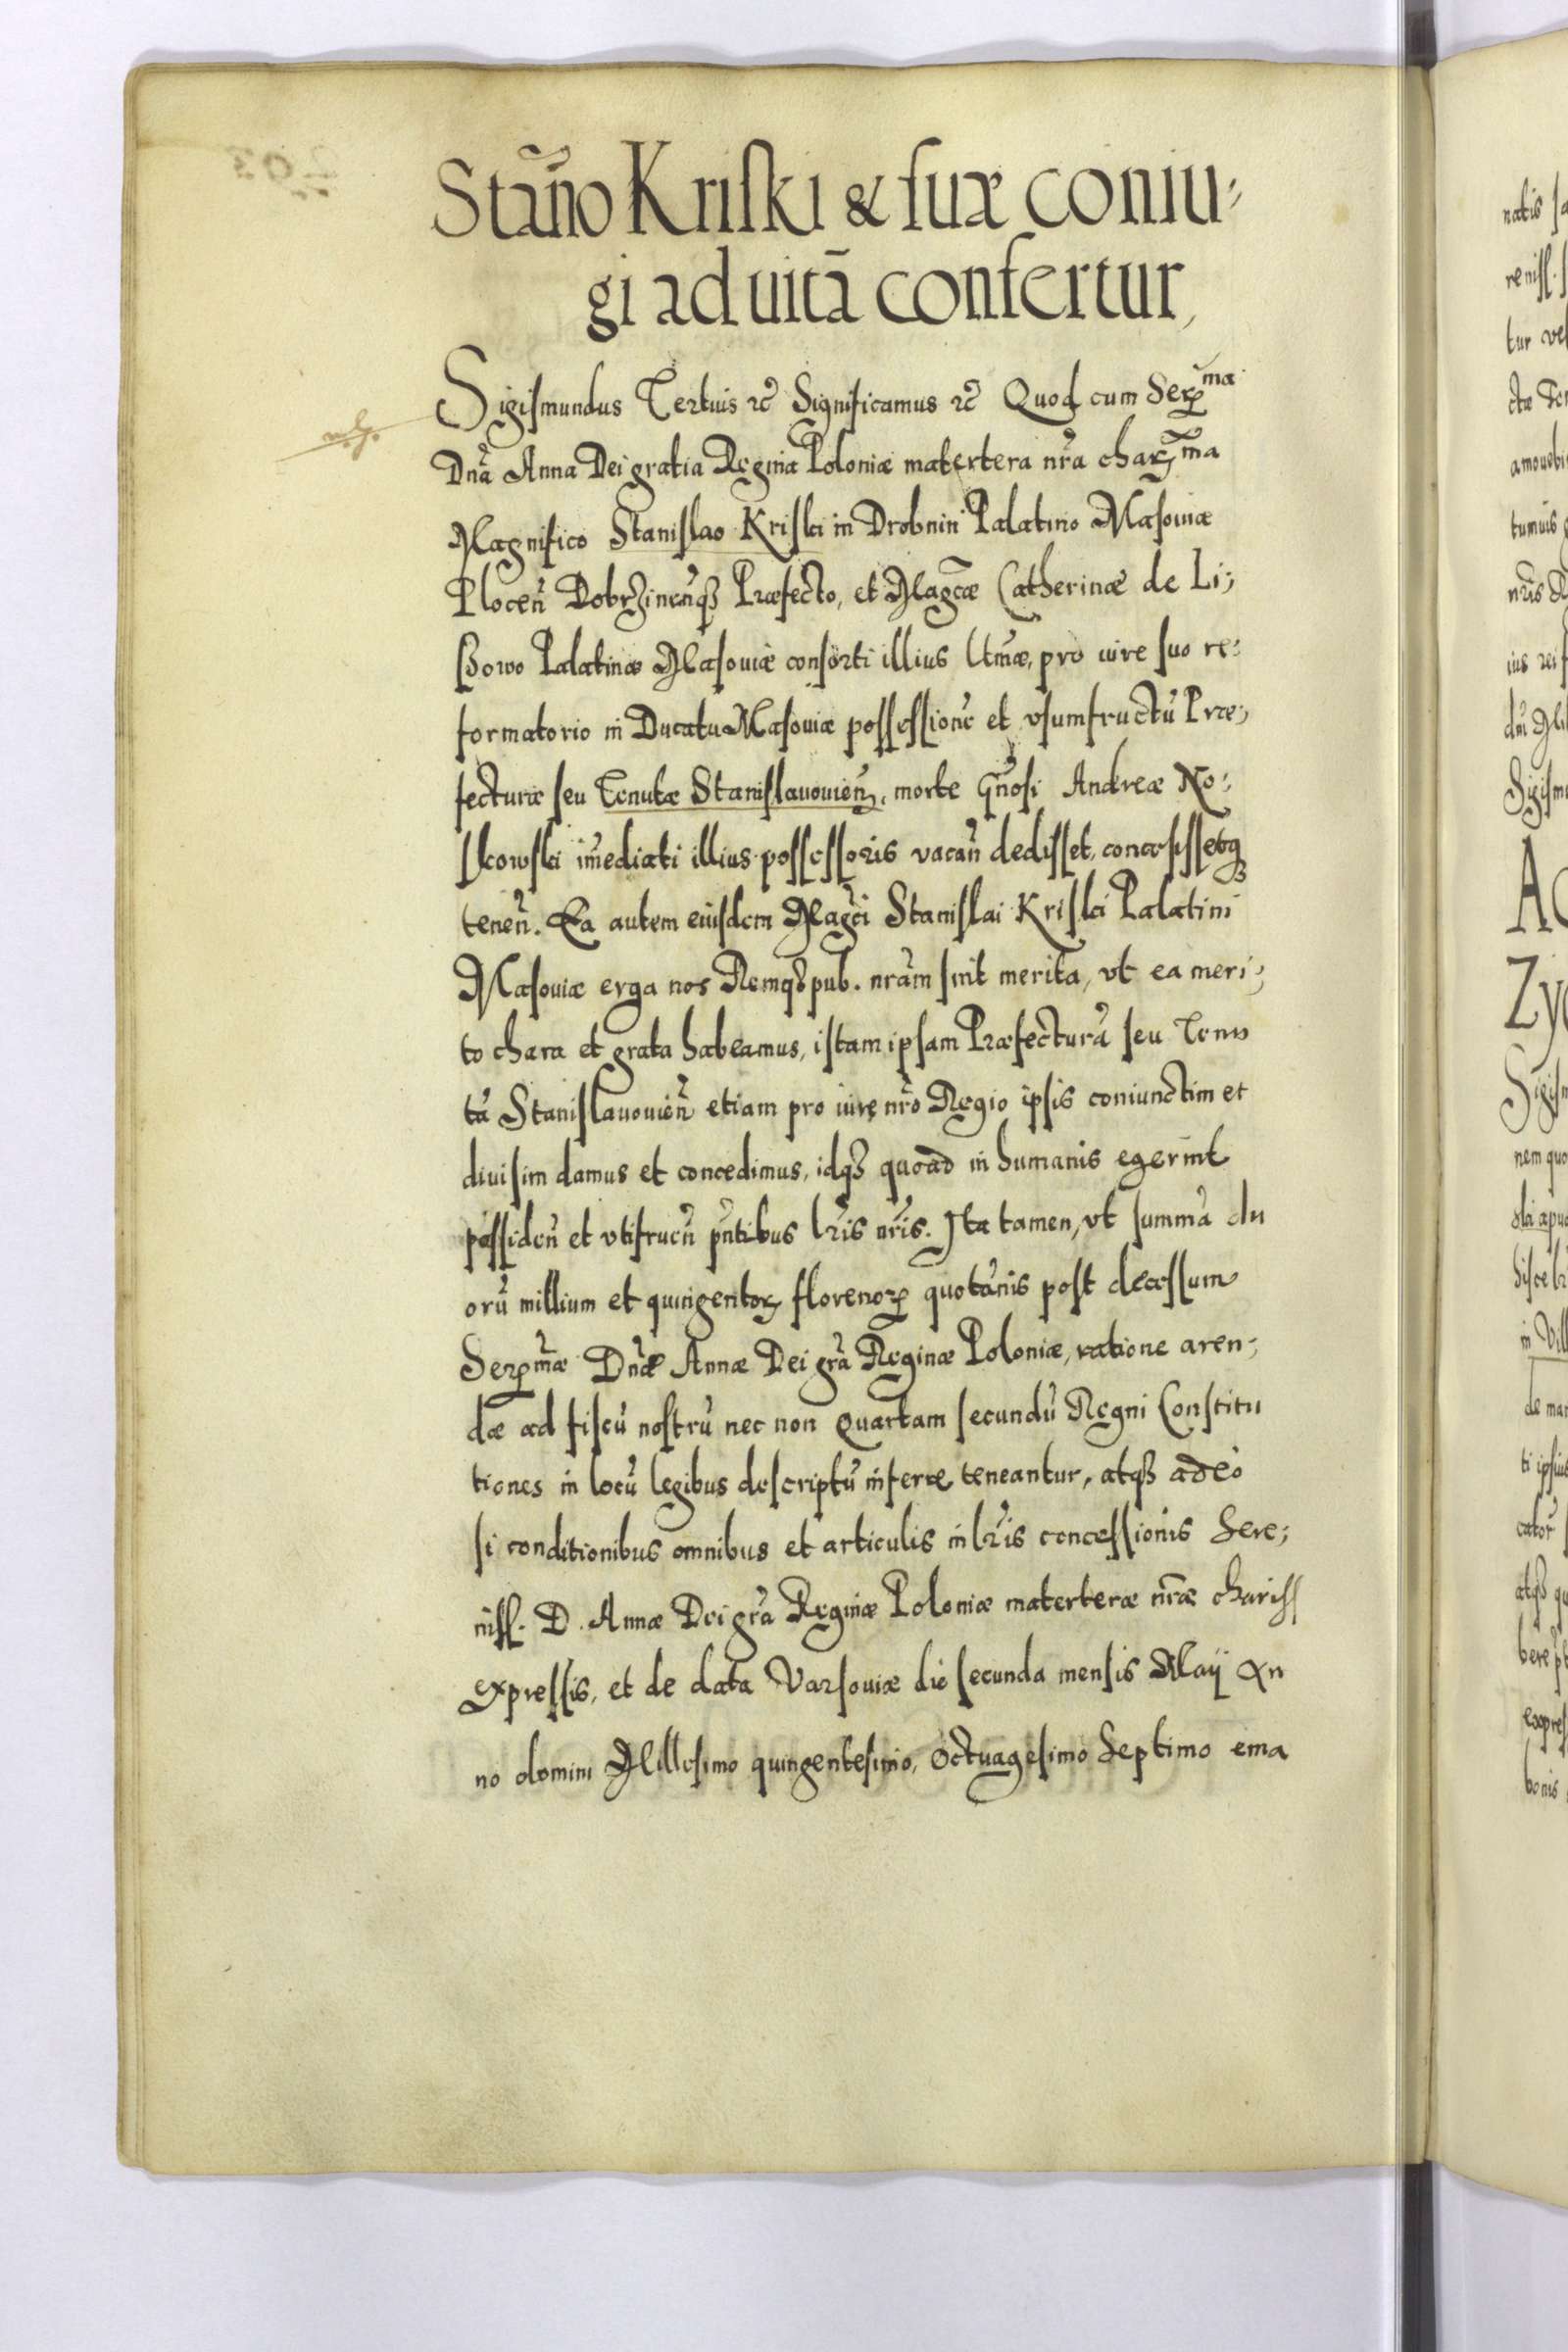 Stan̄o Kriſki & ſuæ coniu-
gi ad uitā confertur,
Sigiſmundus Tertius ꝛc̃ Significamus ꝛc̃ Quod cum Serᵐᵃ
Dnã Anna Dei gratia Regina Poloniæ matertera nr̃a charᵐᵃ
Magnifico Stanislao Kriſki in Drobnin Palatino Maſouiæ
Plocen̄ Dobrzinen̄qꝫ Præfecto, et Magcæ Catherinæ de Li-
ſſowo Palatinæ Maſouiæ conſorti illius ltmæ, pro iure ſuo re-
formatorio in Ducatu Maſouiæ poſſeſſionē et vſumfructū Præ-
fecturæ ſeu Tenutæ Stanislauouien̄, morte Gn̄oſi Andreæ No-
ſkowſki im̄ediati illius poſſeſſoris vacan̄ dediſſet, conceſſiſſetqꝫ
tenen̄. Ea autem eiuſdem Magci Stanislai Kriſki Palatini
Maſouiæ erga nos Remqꝫ pub. nr̃am ſint merita, vt ea meri-
to chara et grata habeamus, iſtam ipſam Præfecturā ſeu Tenu
tā Stanislauouien̄ etiam pro iure nr̃o Regio ipſis coniunctim et
diuiſim damus et concedimus, idqꝫ quoad in humanis egerint
poſſiden̄ et vtifruen̄ pn̄tibus lr̃is nr̃is. Ita tamen, vt ſummā du
orū millium et quingentoꝝ florenoꝝ quotānis poſt deceſſum
Serᵐæ Dn̄æ Annæ Dei gr̃a Reginæ Poloniæ, ratione aren-
dæ ad fiſcū noſtrū nec non Quartam ſecundū Regni Conſtitu
tiones in locū legibus deſcriptū inferre teneantur, atqꝫ adeo
ſi conditionibus omnibus et articulis in lr̃is conceſſionis Sere-
niſſ. D. Annæ Dei gr̃a Reginæ Poloniæ materteræ nr̃æ chariſſ
expreſſis, et de data Varſouiæ die ſecunda menſis Maij An
no domini Milleſimo quingenteſimo, Octuageſimo Septimo ema
natis
reniſſ.
tur
amouebi
tumuis
nr̃is
Sigiſm
Zy
nem quo
in Vill
ti ipſius
bonis